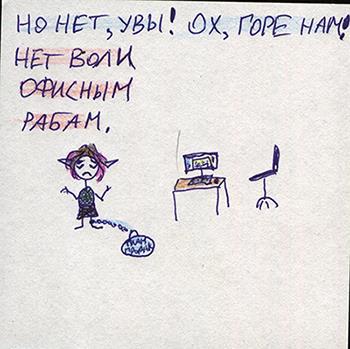 НО НЕТ, УВЫ! ОХ, ГОРЕ НАМ!
НЕТ ВОЛИ
ОФИСНЫМ
РАБАМ.
ПЛАН
ПРОДАЖ